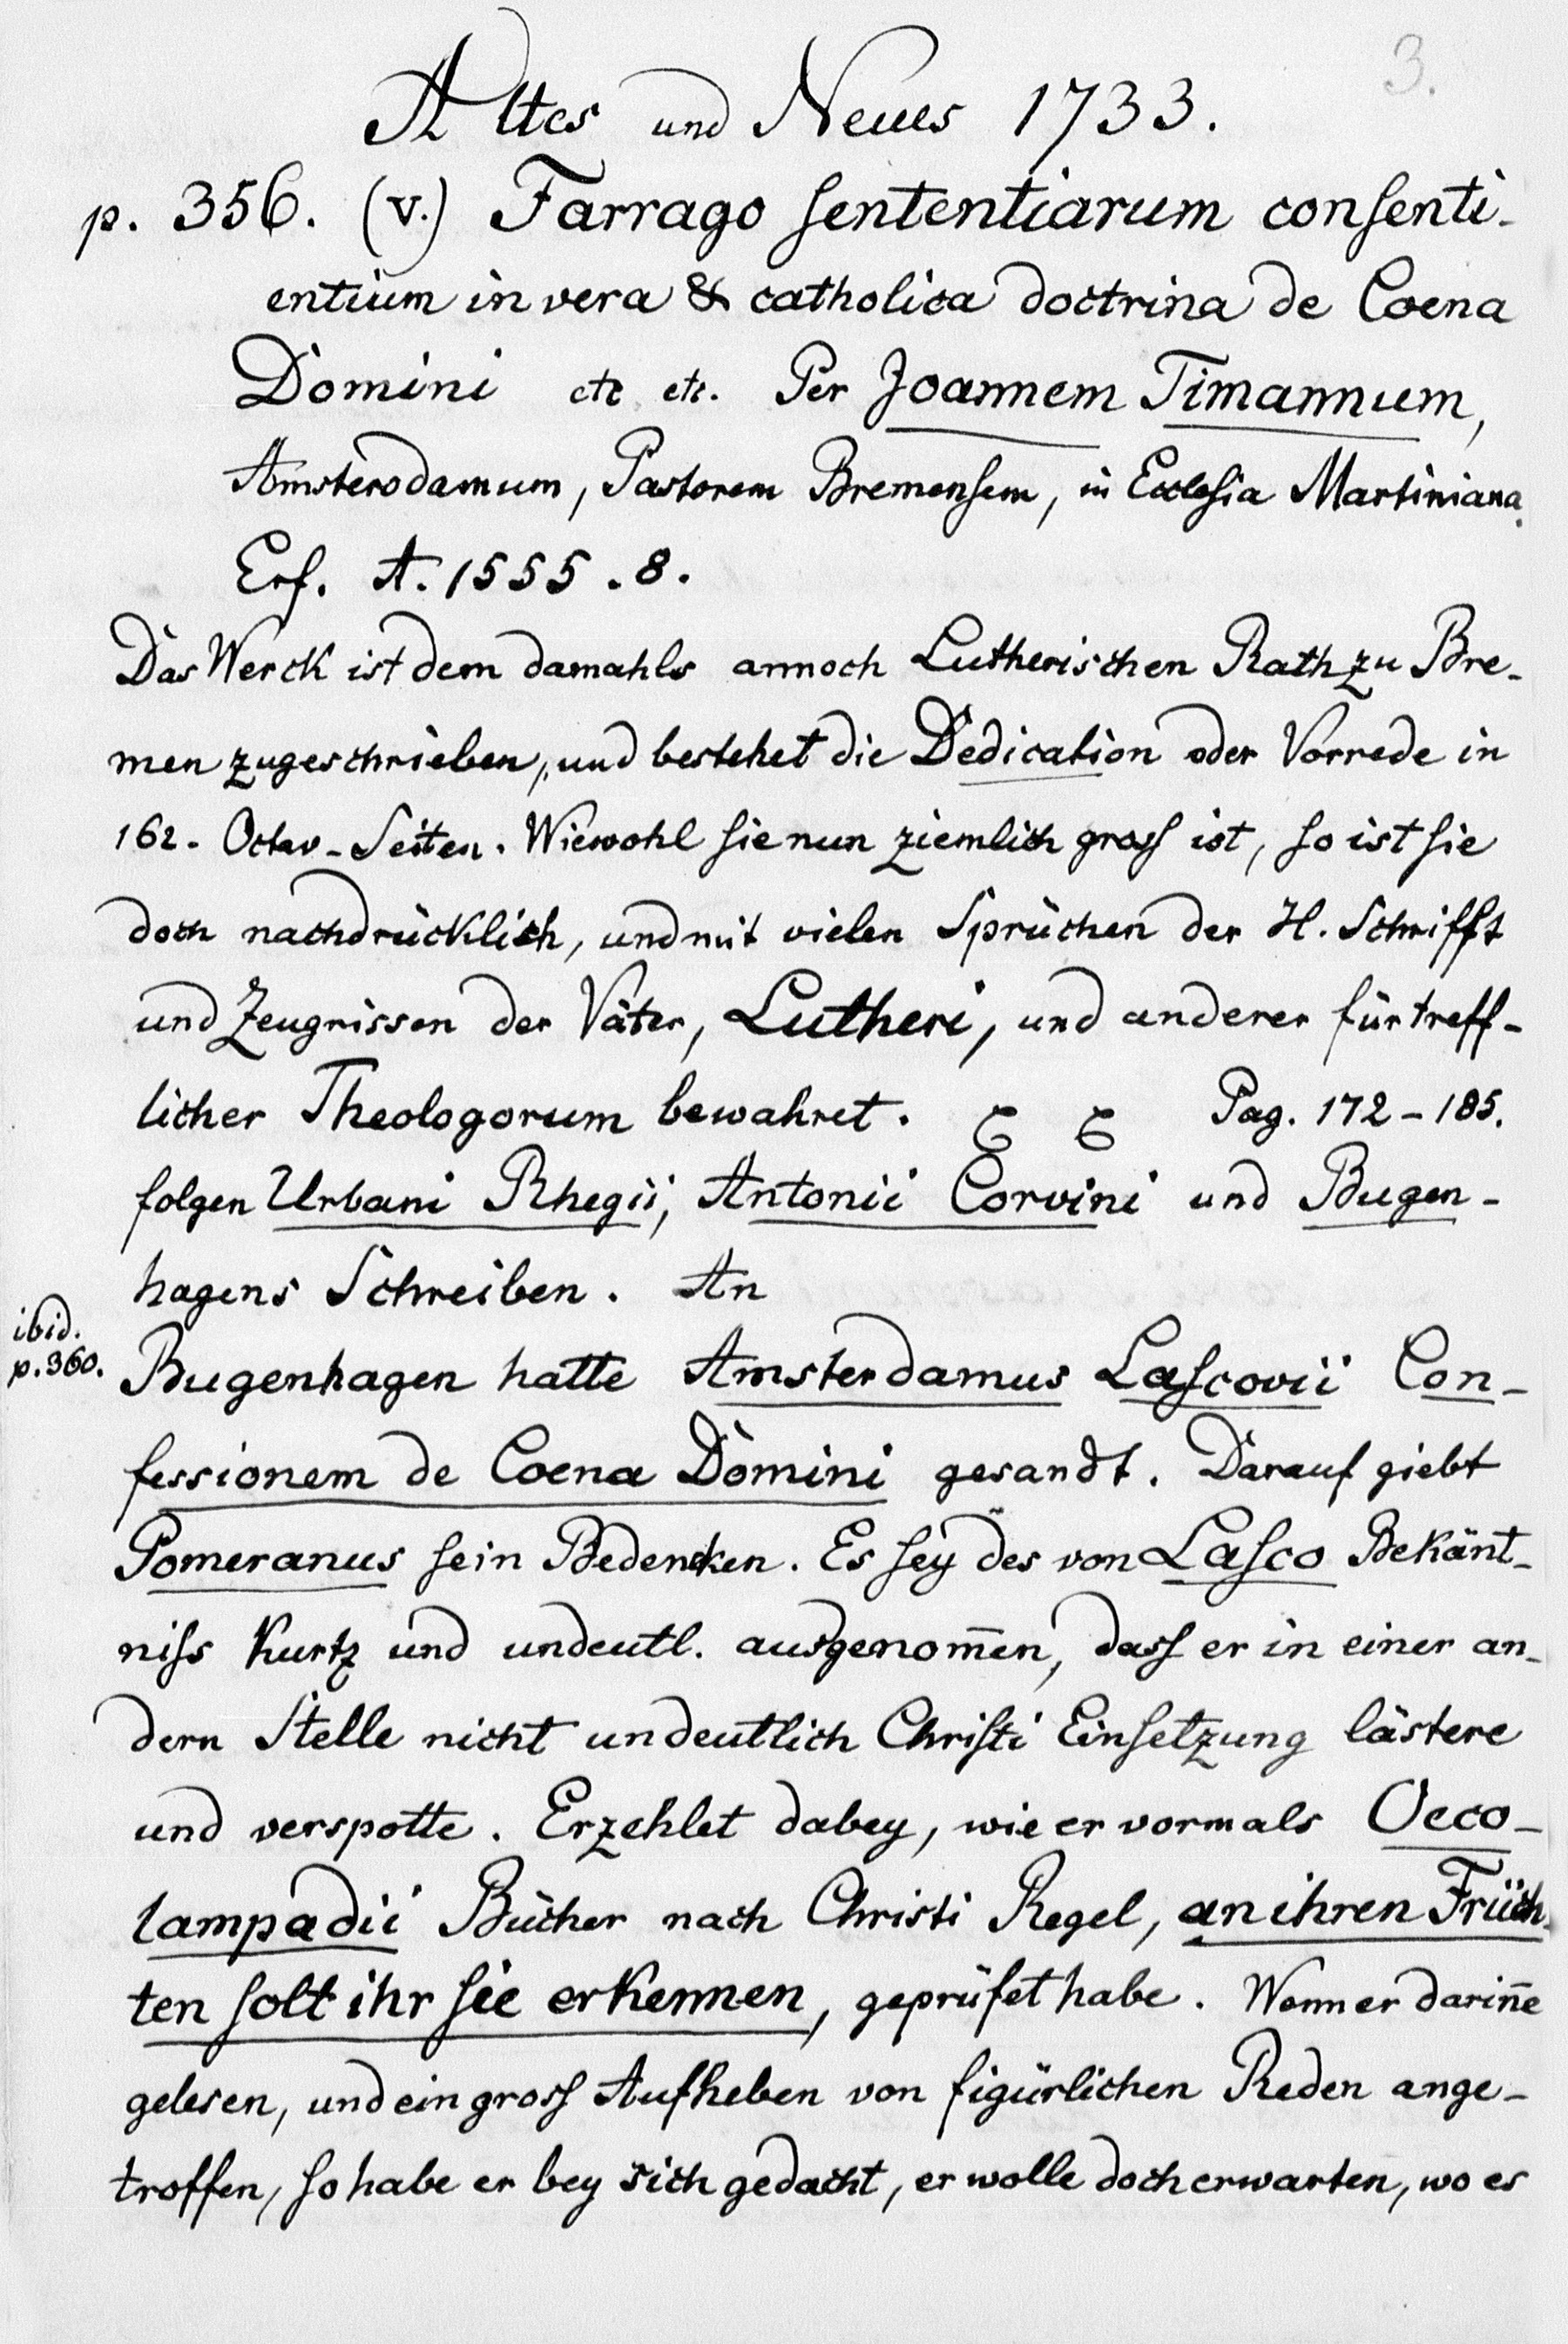 3.
Altes und Neues 1733.
p. 356. (v.) Farrago sententiarum consenti-
entium in vera & catholica doctrina de Coena
Domini etc etc. Per Joannem Timannum,
Amsterodamum, Pastorem Bremensem, in Ecclesia Martiniana.
Erf. A. 1555. 8.
Das Werck ist dem damahls annoch Lutherischen Rath zu Bre-
men zugeschrieben, und bestehet die Dedication oder Vorrede in
162. Octav-Seiten. Wiewohl sie nun ziemlich gross ist, so ist sie
doch nachdrücklich, und mit vielen Sprüchen der H. Schrifft
und Zeugnissen der Väter, Lutheri, und anderer fürtreff-
licher Theologorum bewahret. Pag. 172-185.
folgen Urbani Rhegii, Antonii Corvini und Bugen-
hagens Schreiben. An
ibid.
p. 360.
Bugenhagen hatte Amsterdamus Lascovii Con-
fessionem de Coena Domini gesandt. Darauf giebt
Pomeranus sein Bedencken. Es sey des von Lasco Bekänt-
niss kurtz und undeutl. ausgenom̄en, dass er in einer an-
dern Stelle nicht undeutlich Christi Einsetzung lästere
und verspotte. Erzehlet dabey, wie er vormals Oeco-
lampadii Bücher nach Christi Regel, an ihren Früch-
ten solt ihr sie erkennen, geprüfet habe. Wenn er darin̄e
gelesen, und ein gross Aufheben von figürlichen Reden ange-
troffen, so habe er bey sich gedacht, er wolle doch erwarten, wo es